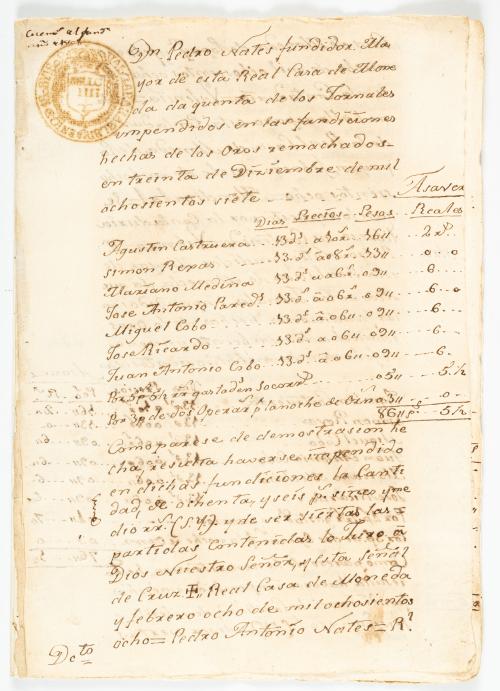 Dn. Pedro Nates fundidor Ma
yor de esta Real Casa de Mone
da da quenta de los Jornales
impendidos en las fundiciones
hechas de los Oros remachados
en treinta de Diziembre de mil
ochosientos siete
Asaver
Dias Precios Pesos Reales
Agustin Castruera 13 ds. a 10 rs. 16 2 rs.
Simon Rexas 13 ds. a 08 rs. 13 0 0
Mariano Medina 13 ds. a 06 rs. 09 6
Jose Antonio Pareds. 13 ds. a 06 rs. 09 6 0
Miguel Cobo 13 ds. a 06 09 6
Jose Ricardo 13 ds. a 06 09 6
Juan Antonio Cobo 13 ds. a 06 09 6
05 5 1/2
de dos Operars. pr. la noche de 3 0
86 ps. 5 1/2
Como parese de demostrasion he
cha, resulta haverse impendido
en dichas fundiciones la Canti
dad de ochenta, y seis ps. sinco y me
dio rrs. (S.Y.) y de ser siertas las
partidas Contenidas lo Juro a
Dios Nuestro Señor, y esta Señal
de Cruz Real Casa de Moneda
y febrero ocho de mil ochosientos
ocho = Pedro Antonio Nates = Rl.
Dcto